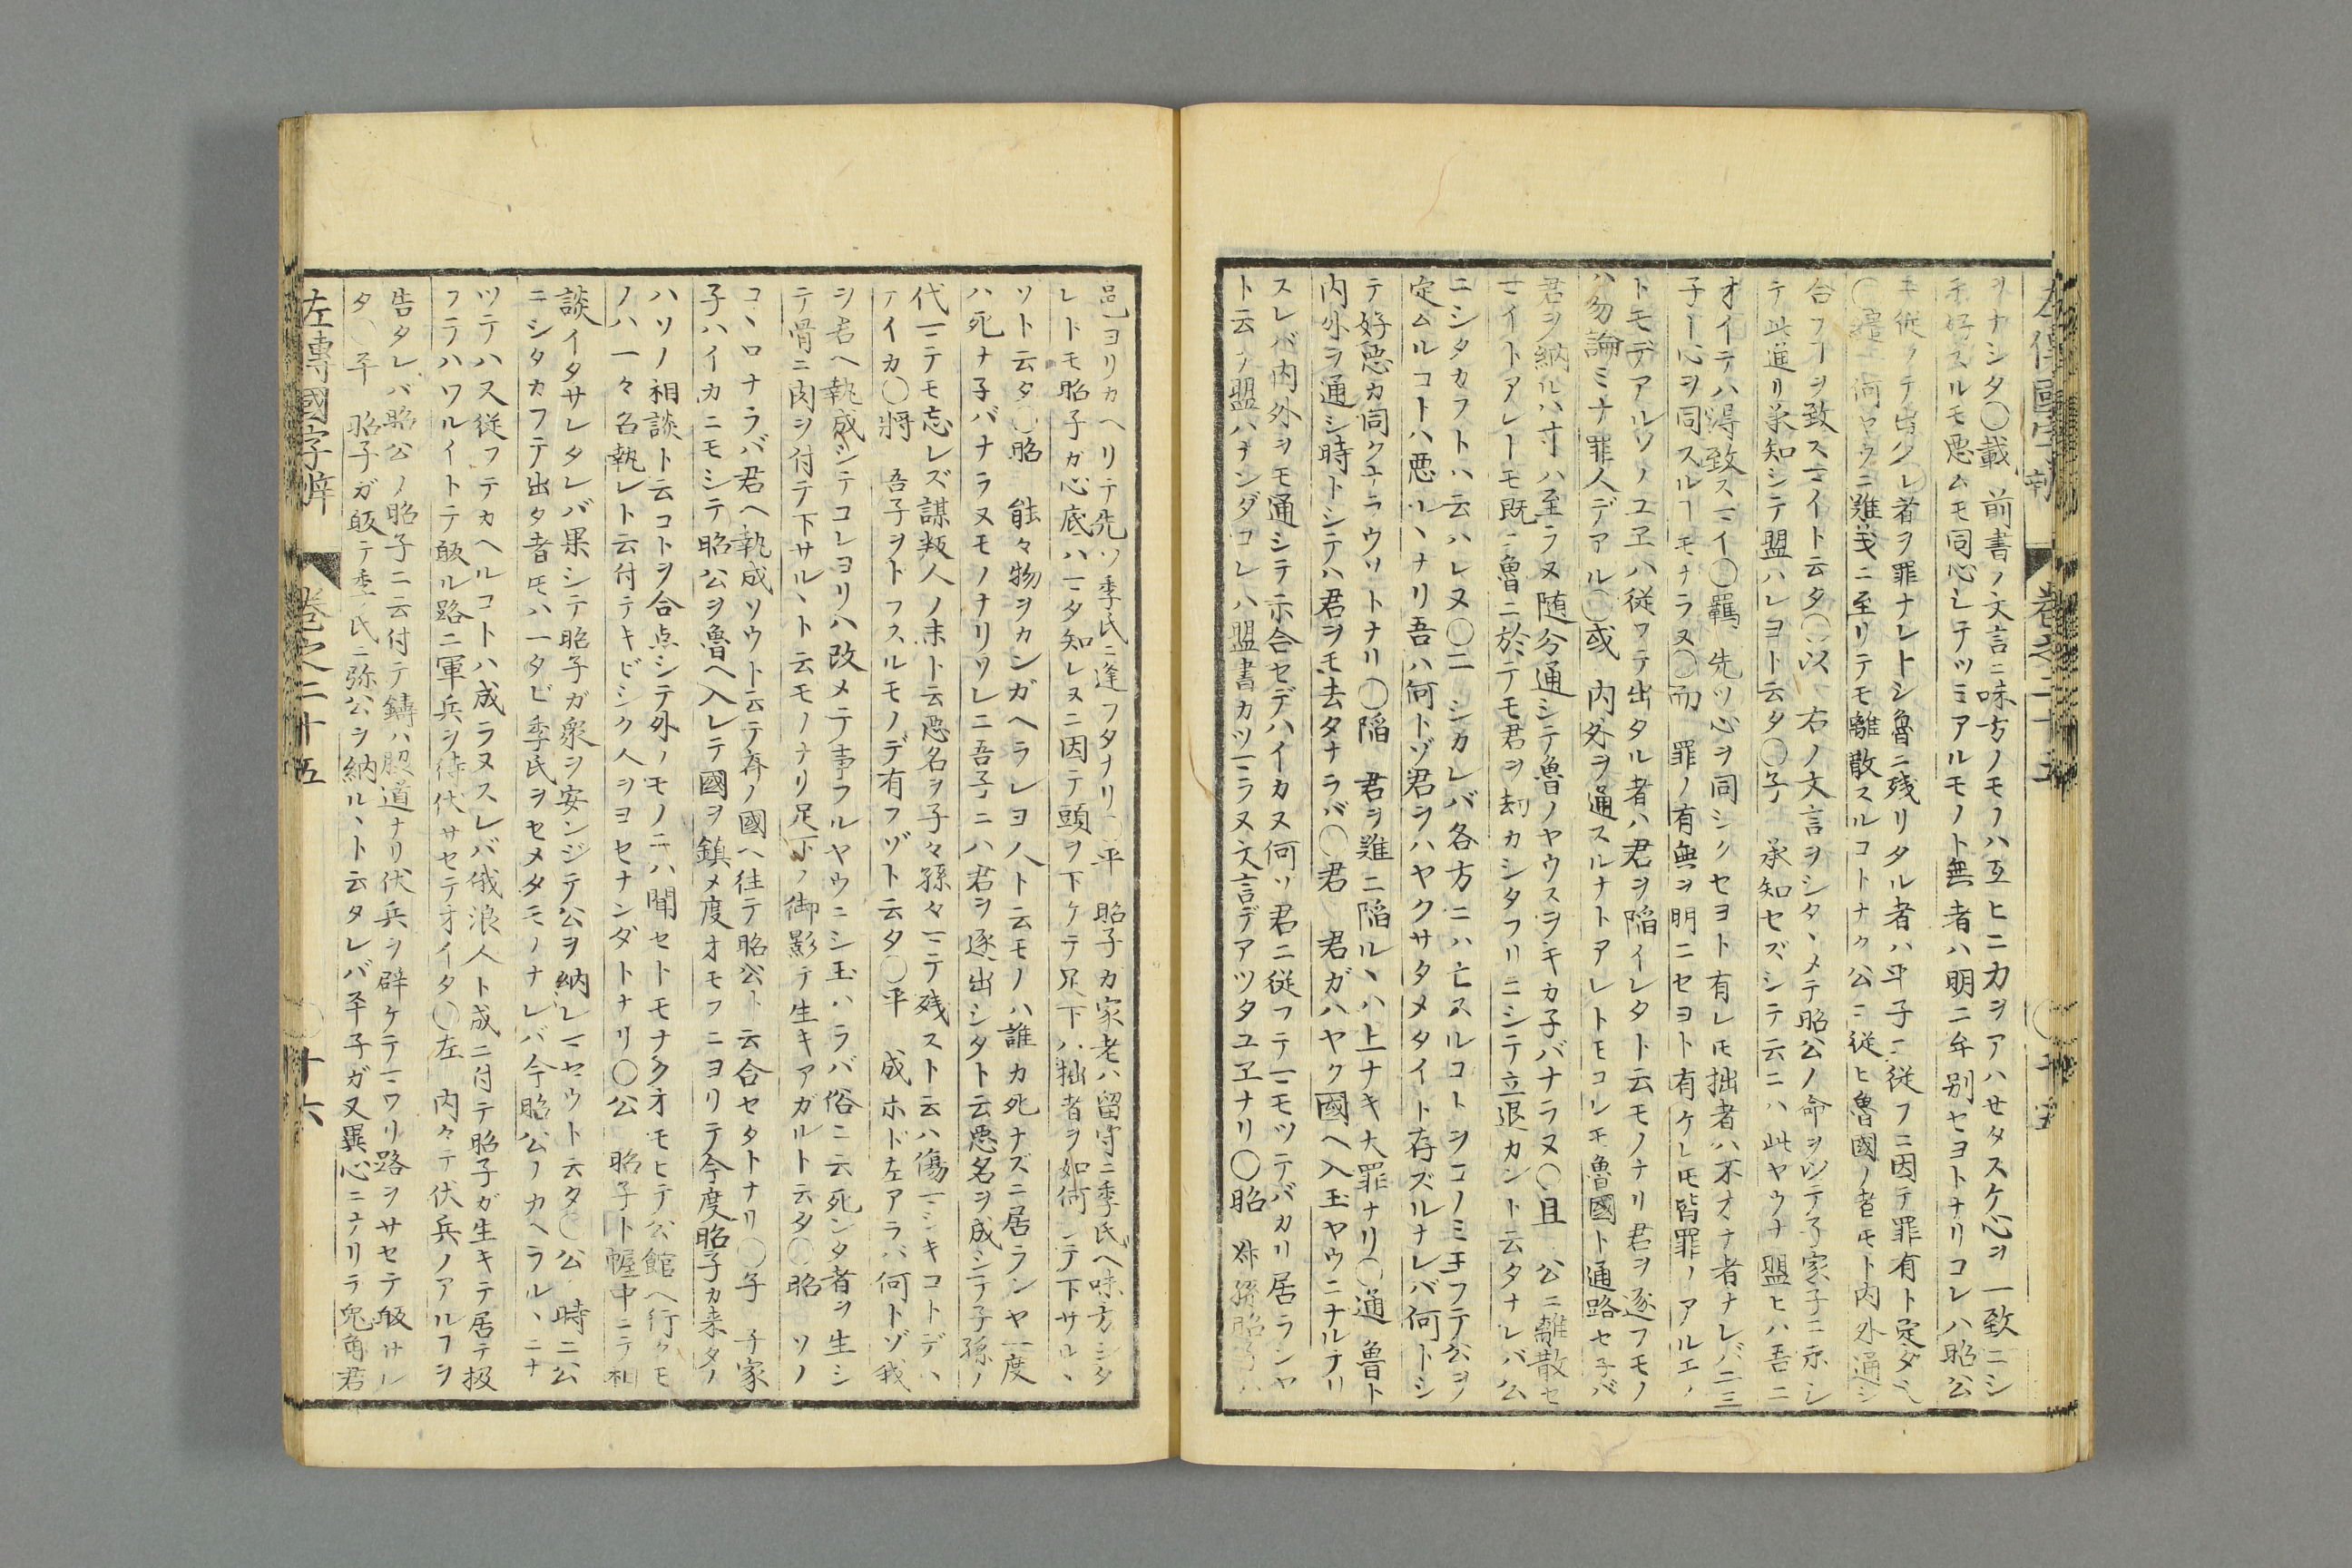 左傳國字辨 卷之二十五 〇十五
ヲナシタ〇載 前書ノ文言ニ味方ノモノハ互ヒニ力ヲアハセタスケ心ヲ一致ニシ
テ好スルモ悪ムモ同心シテツミアルモノト無者ハ明ニ牟別セヨトナリコレハ昭公
ニ従フテ出タレ者ヲ罪ナレトシ魯ニ残リタル者ハ平子ニ従フニ因テ罪有ト定ダ
〇繾 何ヤウニ難義ニ至リテモ離散スルコトナク公ニ従ヒ魯國ノ者モト内外通シ
合フヿヲ致スマイト云タ〇以 右ノ文言ヲシタヽメテ昭公ノ命ヲ以テ子家子ニ示シ
テ此進リ承知シテ盟ハレヨト云タ〇子 承知セズシテ云ニハ此ヤウナ盟ヒハ吾ニ
オイテハ得致スマイ〇羈 先ツ心ヲ同シクセヨト有レ𪜈拙者ハ不才ナ者ナレバ二三
子ト心ヲ同スルヿモナラヌ〇而 罪ノ有無ヲ明ニセヨト有ケレ𪜈皆罪ノアルエノ
トモデアルソノユヱハ従フテ出タル者ハ君ヲ陥イレタト云モノナリ君ヲ逐フモノ
ハ勿論ミナ罪人デアル〇或 内外ヲ通スルナトアレトモコレモ魯國ト通路セ子バ
君ヲ納ルハ寸ハ至ラヌ随分通シテ魯ノヤウスヲキカ子バナラヌ〇且 公ニ離散セ
マイトアレトモ既ニ魯ニ於テモ君ヲ刧カシタフリニシテ立退カント云タナレバ公
ニシタカフトハ云ハレヌ〇二 シカレバ各方ニハ亡スルコトヲコノミ玉フテ公ヲ
定ムルコトハ悪ルヽナリ吾ハ何トゾ君ヲハヤクサタメタイト存ズルナレバ何トシ
テ好惡カ同クナラウソトナリ〇陥 君ヲ難ニ陥ルヽハ上ナキ大罪ナリ〇通 魯ト
内外ヲ通シ時トシテハ君ヲモ去タナラバ〇君 君ガハヤク國ヘ入玉ヤウニナルテリ
スレバ内外ヲモ通シテ示合セデハイカヌ何ソ君ニ従フテマモツテバカリ居ランヤ
ト云ソノ盟ハナンダコレハ盟書カツマラヌ文言デアツタユヱナリ〇昭 叔孫昭子ハ
邑ヨリカヘリテ先ツ季氏ニ逢フタナリ〇平 昭子カ家老ハ留守ニ季氏ヘ味方シタ
レトモ昭子カ心底ハマタ知レヌニ因テ頭ヲ下ケテ足下ハ拙者ヲ如何シテ下サルヽ
ソト云タ〇昭 能々物ヲカンガヘラレヨ人ト云モノハ誰カ死ナズニ居ランヤ一度
ハ死ナ子バナラヌモノナリソレニ吾子ニハ君ヲ逐出シタト云悪名ヲ成シテ子孫ノ
代マテモ忘レズ謀叛人ノ末ト云惡名ヲ子々孫々マテ残ストハ傷マシキコトデハ
ナイカ〇將 吾子ヲトフスルモノデ有フゾト云タ〇平 成ホド左アラバ何トゾ我
ヲ君ヘ執成シテコレヨリハ改メテ事フルヤウニシ玉ハラバ俗ニ云死ンタ者ヲ生シ
テ骨ニ肉ヲ付テ下サルヽト云モノナリ足下ノ御影テ生キアガルト云タ〇昭 ソノ
コヽロナラバ君ヘ執成ソウト云テ斉ノ國ヘ往テ昭公ト云合セタトナリ〇子 子家
子ハイカニモシテ昭公ヲ魯ヘ入レテ國ヲ鎮メ度オモフニヨリテ今度昭子カ来タノ
ハソノ相談ト云コトヲ合点シテ外ノモノニハ聞セトモナクオモヒテ公館ヘ行クモ
ノハ一々召執レト云付テキビシク人ヲヨセナンダトナリ〇公 昭子ト幄中ニテ相
談イタサレタレバ果シテ昭子ガ衆ヲ安ンジテ公ヲ納レマセウト云タ〇公 時ニ公
ニシタカフテ出タ者𪜈ハ一タビ季氏ヲセメタモノナレバ今昭公ノカヘラルヽニナ
ツテハス従フテカヘルコトハ成ラヌスレバ俄浪人ト成ニ付テ昭子ガ生キテ居テ扱
フテハワルイトテ皈ル路ニ軍兵ヲ待伏サセテオイタ〇左 内々テ伏兵ノアルフヲ
告タレバ昭公ノ昭子ニ云付テ鑄ハ股道ナリ伏兵ヲ辟ケテマワリ路ヲサセテ皈サレ
タ〇平 昭子ガ皈テ季氏ニ弥公ヲ納ルヽト云タレバ平子ガ又異心ニナリテ兎角君
左傳國字辨 卷之二十五 〇十六